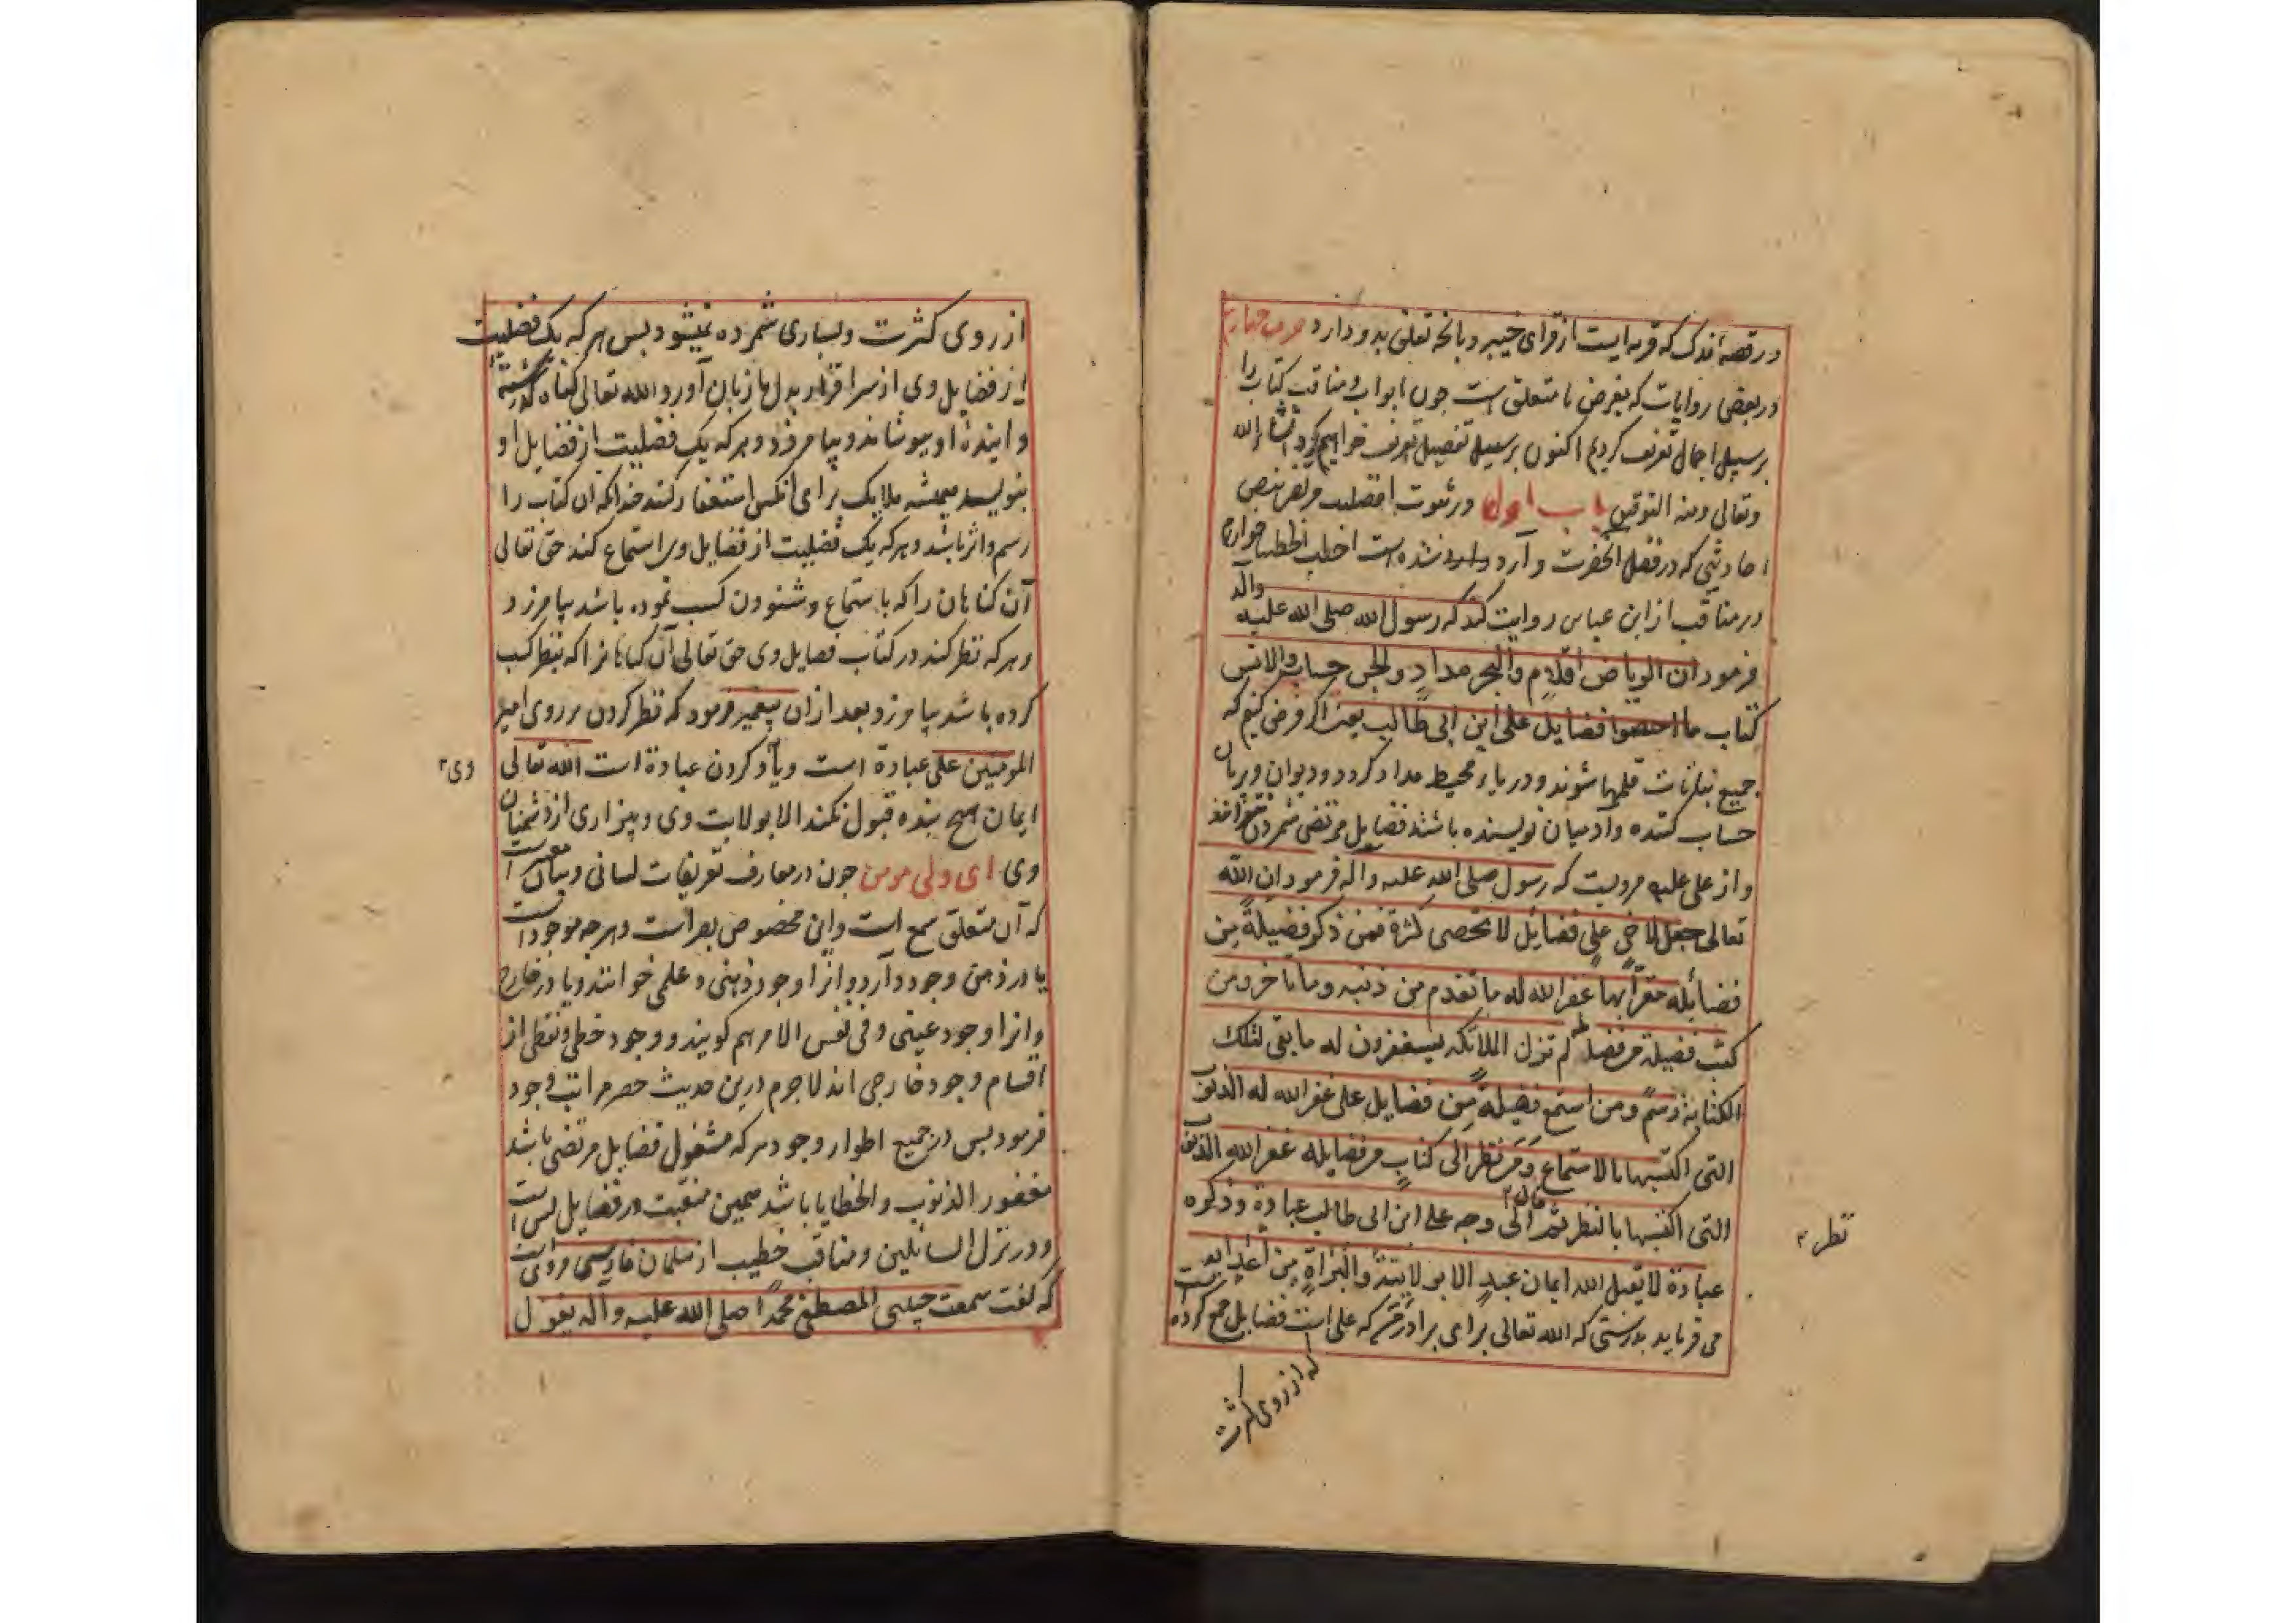 در قصهٔ فدک که قریه ایست از قرای خیبر و بانچه تعلق بدو دارد حرف چهارم
در بعضی روایات که بغرض ما متعلق است چون ابواب و مناقب کتاب را
بر سبیل اجمال تعریف کردیم اکنون بر سبیل تفصیل تعریف خواهیم کرد انشاء الله
وتعالی ومنه التوفیق باب اول در ثبوت افضلیت مرتضی بنص
احادیثی که در فضل آنحضرت وارد شده است اخطب الخطبا خوارزم
در مناقب از ابن عباس روایت کند که رسول الله صلی الله علیه وآله
فرمود ان الریاض اقلام والبحر مداد والجن حساب والانس
کتاب ما احصوا فضایل علی ابن ابی طالب یعنی اگر فرض کنیم که
جمیع نباتات قلمها شوند و دریاء محیط مداد کردد و دیوان و پریان
حساب کننده وادمیان نویسنده باشند فضایل مرتضی شمردن نتوانند
واز علی علیه مرویست که رسول صلی الله علیه واله فرمود ان الله
تعالی جعل لاخی علی فضایل لا تحصی کثرة فمن ذکر فضیلة من
فضائله مقرا بها غفر الله له ما تقدم من ذنبه وما تاخر ومن
کتب فضیلة من فضایله لم تزل الملائکه یستغفرون له ما بقی لتلک
الکتابة رسم ومن استمع فضیلة من فضایل علی غفر الله له الذنوب
التی اکتسبها بالاستماع ومن نظر الی کتاب من فضایله غفر الله الذنوب
التی اکتسبها بالنظر ثم قال الی وجه علی ابن ابی طالب عبادة وذکره
نظر
عبادة لا یقبل الله ایمان عبد الا بولایته والبراة من اعدایه
می فرماید بدرستی که الله تعالی برای برادرم که علی است فضایل جمع کرده است
که از روی کثرت
از روی کثرت وبسیاری شمرده نمیشود بس هر که یک فضلیت
از فضایل وی از سر اقرار بدل با زبان آورد الله تعالی کناه کذشته
و ایندهٔ او بپوشاند و بیامرزد و هر که یک فضلیت از فضایل او
بنویسد همیشه ملایک برای انکس استغفار کنند چندانکه ان کتاب را
رسم واثر باشد و هر که یک فضلیت از فضایل وی استماع کند حق تعالی
آن کناهان را که باستماع و شنودن کسب نموده باشد بیامرزد
وهر که نظر کند در کتاب فضایل وی حق تعالی آن کناهانرا که بنظر کسب
کرده باشد بیامرزد بعد از ان پیغمبر فرمود که نظر کردن بر روی امیر
المومنین علی عبادة است ویاد کردن عبادة است الله تعالی
وی
ایمان هیچ بنده قبول نکند الا بولایت وی و بیزاری از دشمنان
وی ای ولی مومن چون در معارف تعریفات لسانی و بیان معبر است
که آن متعلق سمع است واین مخصوص بصر است وهر چه موجود است
یا در ذهن وجود دارد و انرا وجود ذهنی و علمی خوانند ویا در خارج
وانرا وجود عینی وفی نفس الامر هم کویند و وجود خطی و لفظی از
اقسام وجود خارجی اند لاجرم درین حدیث حصر مراتب وجود
فرمود بس در جمیع اطوار وجود هر که مشغول فضایل مرتضی باشد
مغفور الذنوب والخطایا باشد همین منقبت در فضایل بس است
ودر نزل السائلین و مناقب خطیب از سلمان فارسی مرویست
که کفت سمعت حبیبی المصطفی محمدا صلی الله علیه وآله یقول